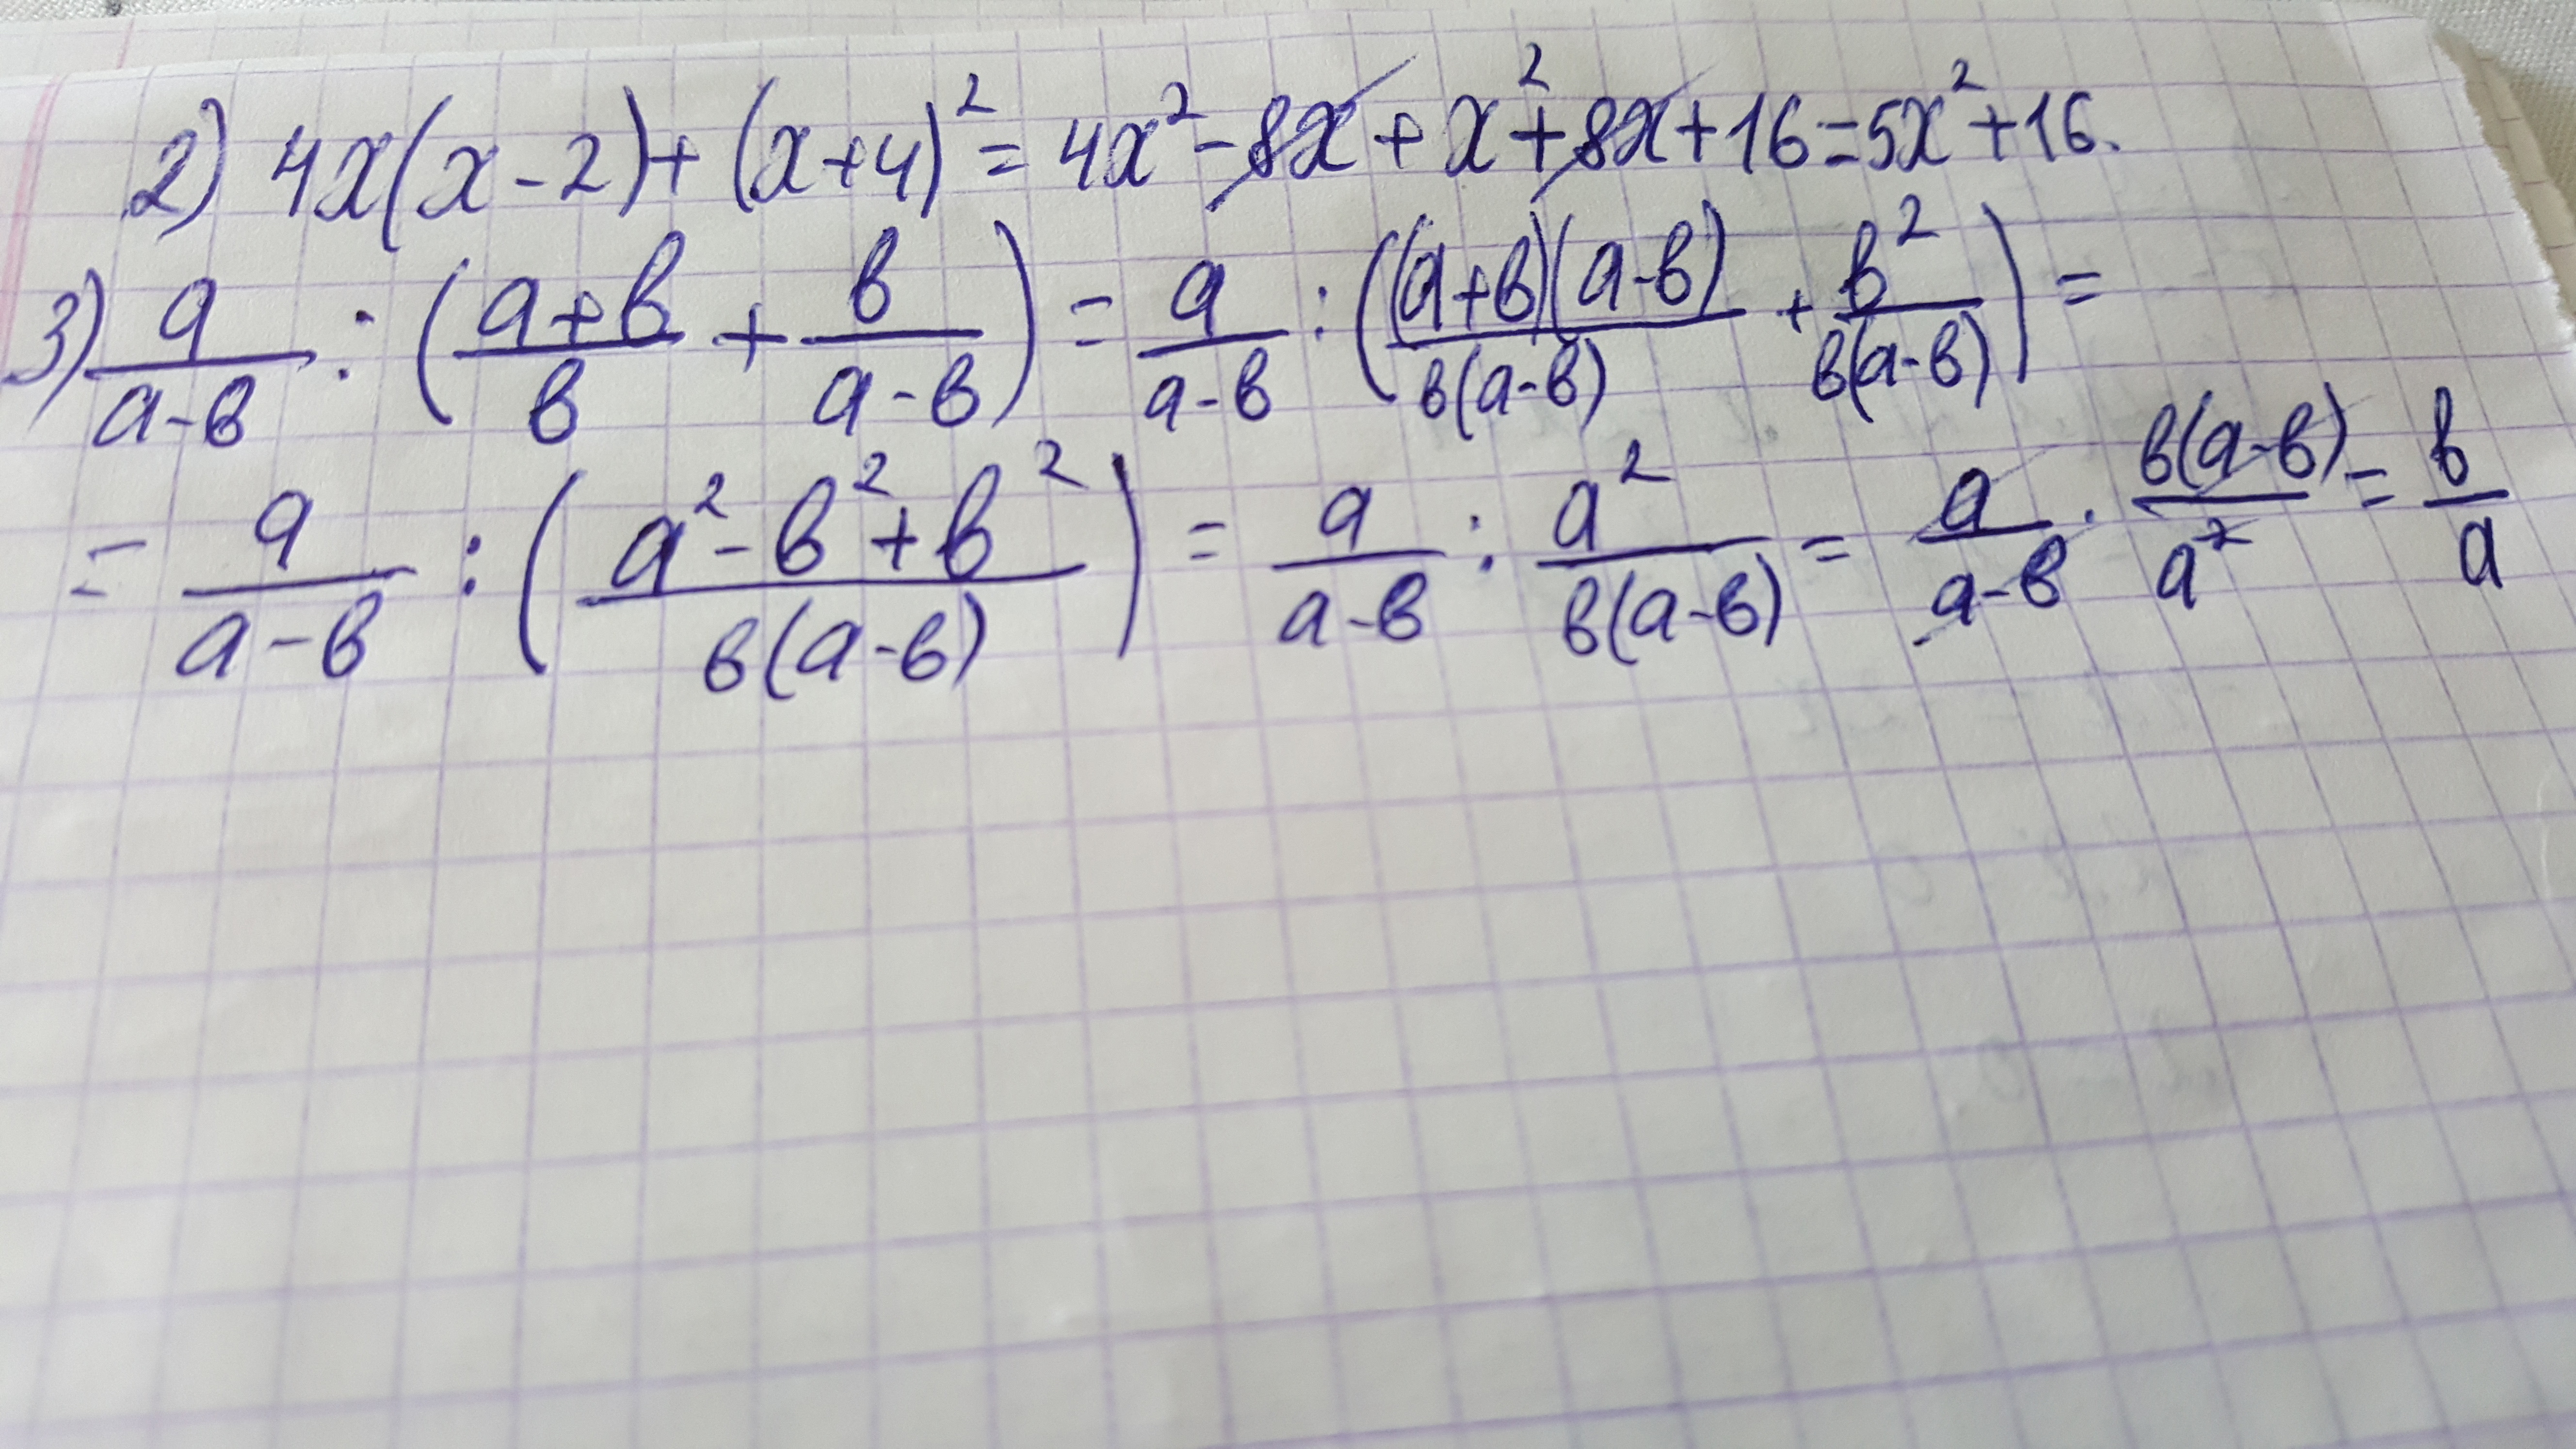 2) 4x(x-2)+(x+4)² = 4x² - 8x + x² + 8x + 16 = 5x² + 16.
3) a/(a-b) : ((a+b)/b + b/(a-b)) = a/(a-b) : ((a+b)(a-b)/b(a-b) + b²/b(a-b)) =
= a/(a-b) : ((a²-b²+b²)/b(a-b)) = a/(a-b) : a²/b(a-b) = a/(a-b) · b(a-b)/a² = b/a